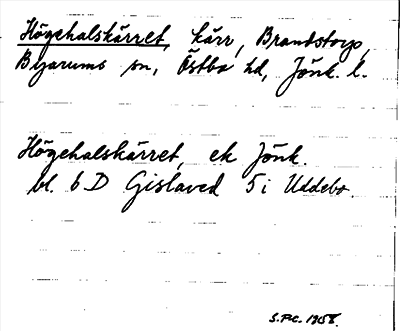 Högehalskärret, kärr, Brandstorp,
Byarums sn, Östbo hd, Jönk. l.
Högehalskärret, ek Jönk.
bl. 6 D Gislaved 5 i Uddebo.
1958.